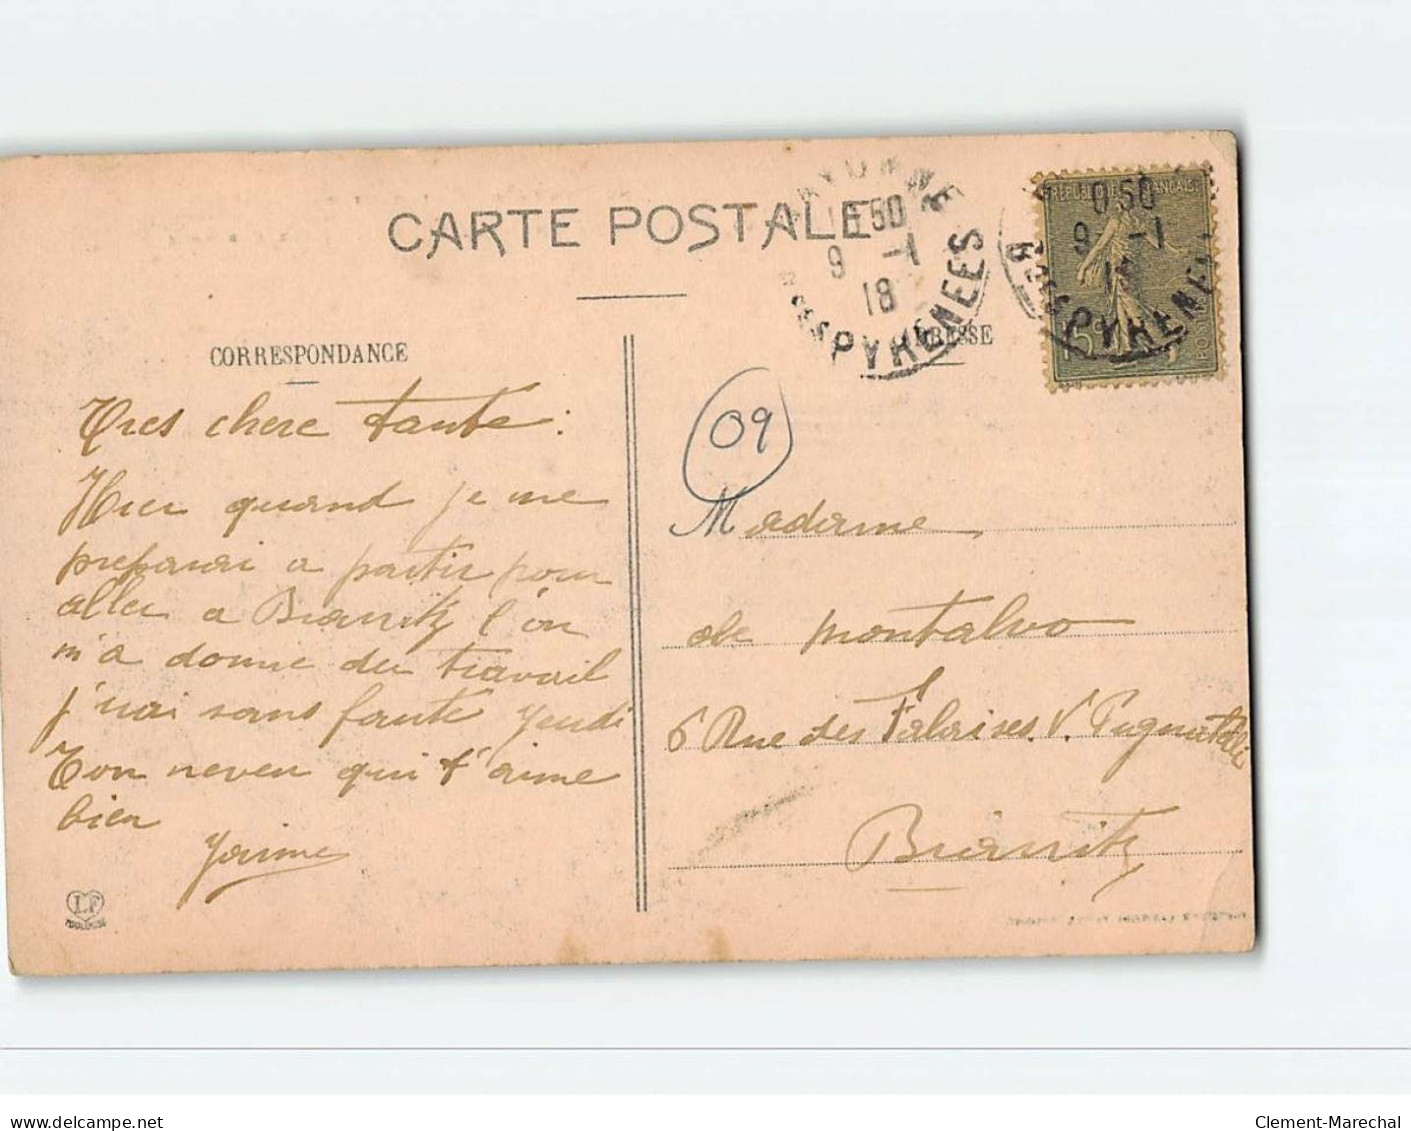 CARTE POSTALE
BAYONNE
0 50
9 -1
18
BSES PYRENEES
RÉPUBLIQUE FRANÇAISE
0 50
9 -1
18
PYRENEES
15c
POSTES
CORRESPONDANCE
ADRESSE
Tres chere tante :
Hier quand je me
preparai a partir pour
aller a Biarritz l'on
m'a donne du travail
j'irai sans faute jeudi
Ton neveu qui t'aime
bien
Jaime
09
Madame
de Montalvo
6 Rue des Falaises V. Pugnatelli
Biarritz
LF
TOULOUSE
www.delcampe.net
Clement-Marechal